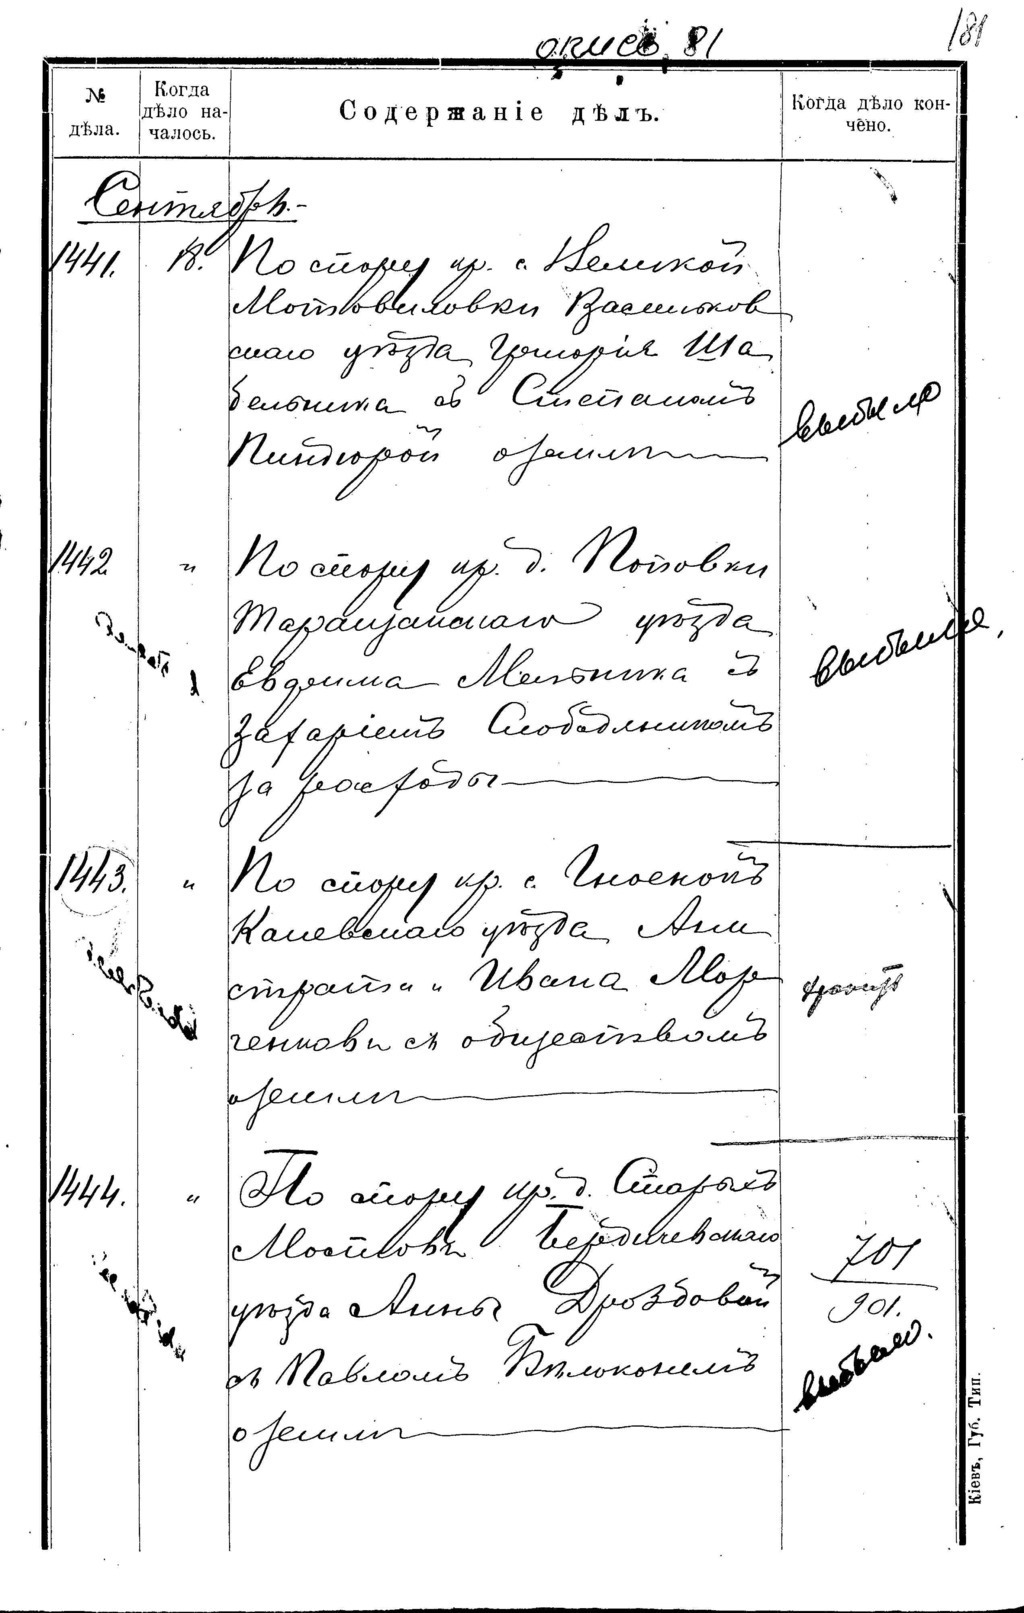 опись 81
181
№ дѣла.
Когда дѣло началось.
Содержаніе дѣлъ.
Когда дѣло кончено.
Сентябрь.-
1441. 18. По спору кр. с. Великой
Мотовиловки Васильков
скаго уѣзда Григорія Ша
бельника съ Степаномъ
Пиндюрой о земли
выбыло
1442 " По спору кр. д. Потовки
Таращанскаго уѣзда
Евдокима Мельника съ
Захаріемъ Слободяникомъ
за расходы
выбыло,
1443. " По спору кр. с.
Каневскаго уѣзда
и Ивана Мор
ченковы съ обществомъ
о земли
1444. " По спору кр. д. Старыхъ
Мостовъ Бердичевскаго
уѣзда Анны Дроздовой
съ Павломъ Бѣлоконемъ
о земли
701
901.
выбыло.
Кіевъ, Губ. Тип.